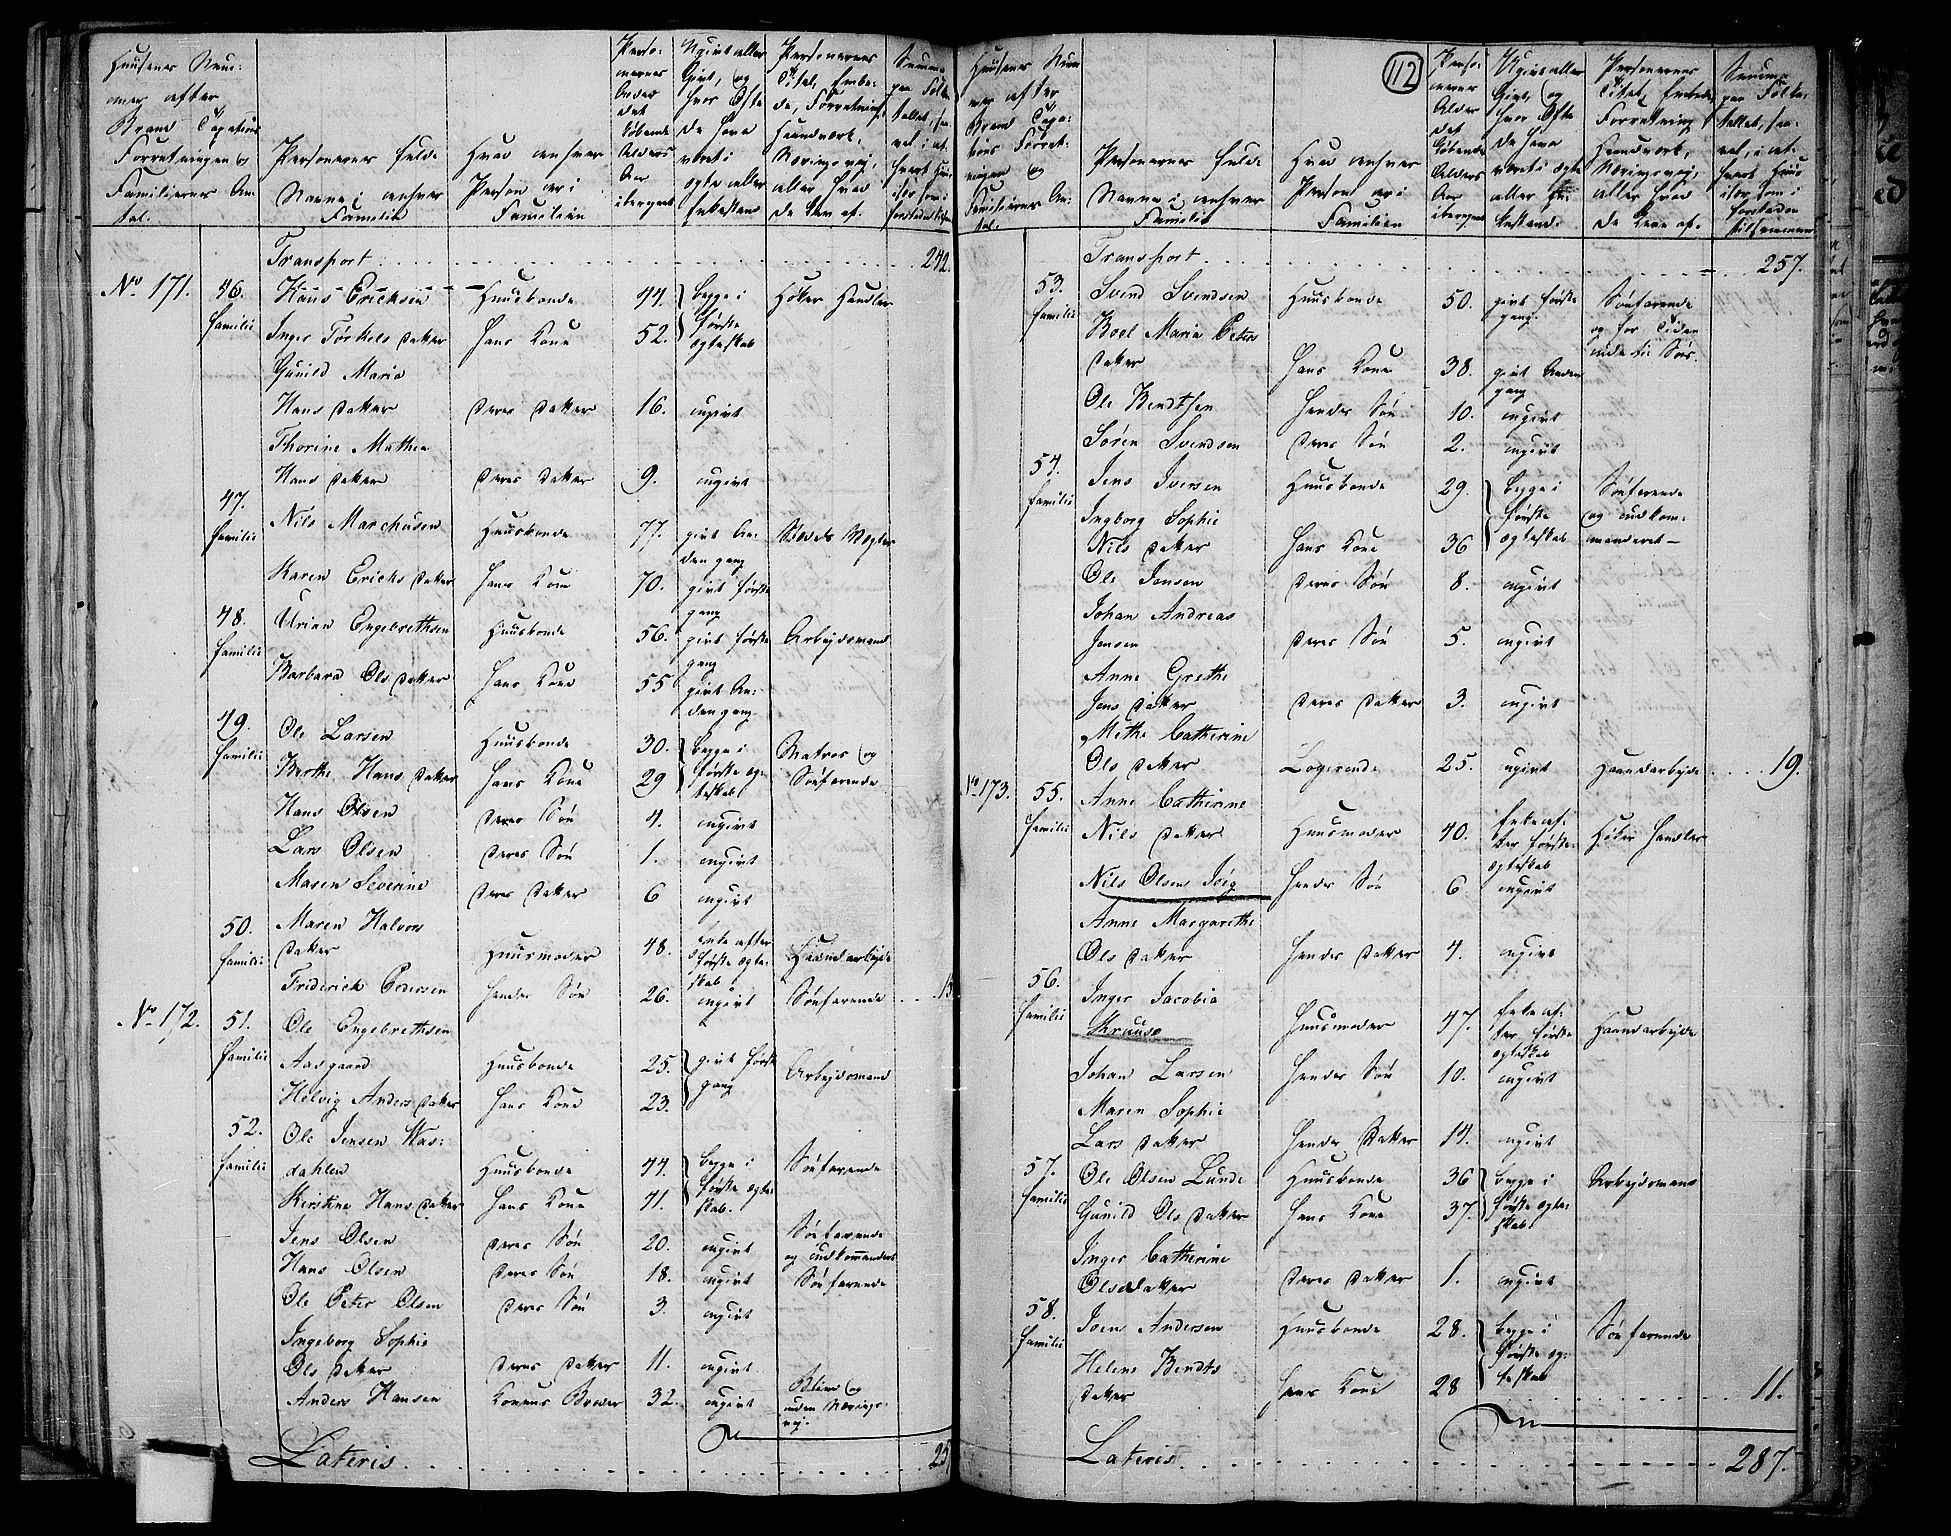 Huusenes Num-
mer efter
Brand Taxations
Forretningen og
Familiernes An-
tal.
Personernes fulde
Navne i enhver
Familie
Hvad enhver
Person er i
Familien
Perso-
nernes
Alder
det
løbende
Alders
Aar
iberegnet
Ugivt eller
Givt, og
hvor Ofte
De have
været i
Ægte eller
Enkestand
Personernes
Titel, Embe-
de, Forretning,
Haandværk,
Næringsvej,
eller hvad
De leve af.
Summa
paa Folke
Transport 242.
No. 171. 46. Familie Hans Erichsen Huusbonde 44. begge i første Ægteskab Høker Handler
Inger Törkels Datter Hans Kone 52.
Gunild Maria
Hans Datter Deres Datter 16. ugivt
Thorine Mathea
Hans Datter Deres Datter 9. ugivt
47. Familie Nils Marchusen Huusbonde 77. givt An-
den gang Stædets Vægter
Karen Erichs Datter Hans Kone 70. givt første
gang
48. Familie Urian Engebrethsen Huusbonde 56. givt første
gang Arbejdsmand
Barbara Ols Datter Hans Kone 55 givt An-
den gang
49. Familie Ole Larsen Huusbonde 30. begge i Matros og
Berthe Hans Datter Hans Kone 29 første Æg-
teskab Søefarende
Hans Olsen Deres Søn 4. ugivt
Lars Olsen Deres Søn 1. ugivt
Maren Severine Deres Datter 6 ugivt
50. Familie Maren Halvors
Datter Huusmoder 48. Enke efter
første Ægte-
skab Haandarbejde
Friderich Pedersen Hendes Søn 26. ugivt Søefarende
No. 172. 51. Familie Ole Engebrethsen
Aasgaard Huusbonde 25. givt første
gang Arbejdsmand
Helvig Anders Datter Hans Kone 23.
52. Familie Ole Jensen Was-
dahlen Huusbonde 44. begge i Søefarende
Kirstine Hans Datter Hans Kone 41. første Ægte-
skab.
Jens Olsen Deres Søn 20. ugivt Søefarende
og udkommanderet
Hans Olsen Deres Søn 18. ugivt Søefarende
Ole Peter Olsen Deres Søn 3. ugivt
Ingeborg Sophie
Ols Datter Deres Datter 11. ugivt
Anders Hansen Konens Broder 32. ugivt Blind og
uden Nærings-
vej.
Lateris 25
112
Huusenes Num
mer efter
Brand Taxa-
tions Forret-
ningen og
Familiernes An-
tal.
Personernes fulde
Navne i enhver
Familie
Hvad enhver
Person er i
Familien
Perso-
nernes
Alder
det
løbende
Alders
Aar
iberegnet
Ugivt eller
Givt, og
hvor Ofte
De have
været i Ægte
eller En-
kestand.
Personernes
Titel, Embede,
Forretning,
Haandværk,
Næringsvej,
eller hvad
De leve af.
Summa
paa Folke-
tallet, saa-
vel i et-
hvert Huus
især som i
Forstaden
tilsammen
Transport 257.
53. Familie Svend Svendsen Huusbonde 50. givt første
gang Søefarende
og for Tiden
ude til Søes.
Boel Maria Peters
Datter Hans Kone 38. givt Anden
gang
Ole Bendtsen Hendes Søn 10. ugivt
Sören Svendsen Deres Søn 2. ugivt
54. Familie Jens Iversen Huusbonde 29. begge i
første
Ægteskab Søefarende
og udkom-
manderet
Ingborg Sophie
Nils Datter Hans Kone 36
Ole Jensen Deres Søn 8. ugivt
Johan Andreas
Jensen Deres Søn 5. ugivt
Anne Grethe
Jens Datter Deres Datter 3. ugivt
Methe Catherine
Ols Datter Logerende 25. ugivt Haandarbejde 19.
No. 173. 55. Familie Anne Catherine
Nils Datter Huusmoder 40. Enke ef-
ter første
Ægteskab Høker Handler
Nils Olsen Hendes Søn 6. ugivt
Anne Margarethe
Ols Datter Hendes Datter 4. ugivt
56. Familie Inger Jacobia
Kruuse Huusmoder 47. Enke ef-
ter første
Ægteskab Haandarbejde
Johan Larsen Hendes Søn 10. ugivt
Maren Sophie
Lars Datter Hendes Datter 14. ugivt
57. Familie Ole Olsen Lunde Huusbonde 36 begge i Arbejdsmand
Gunild Ols Datter Hans Kone 37. første Ægte-
skab
Inger Catherine
Olsdatter Deres Datter 1. ugivt
58. Familie Joen Andersen Huusbonde 28. begge i
første Æg-
teskab Søefarende
Helene Bendts
Datter Hans Kone 28 11.
Lateris 287.